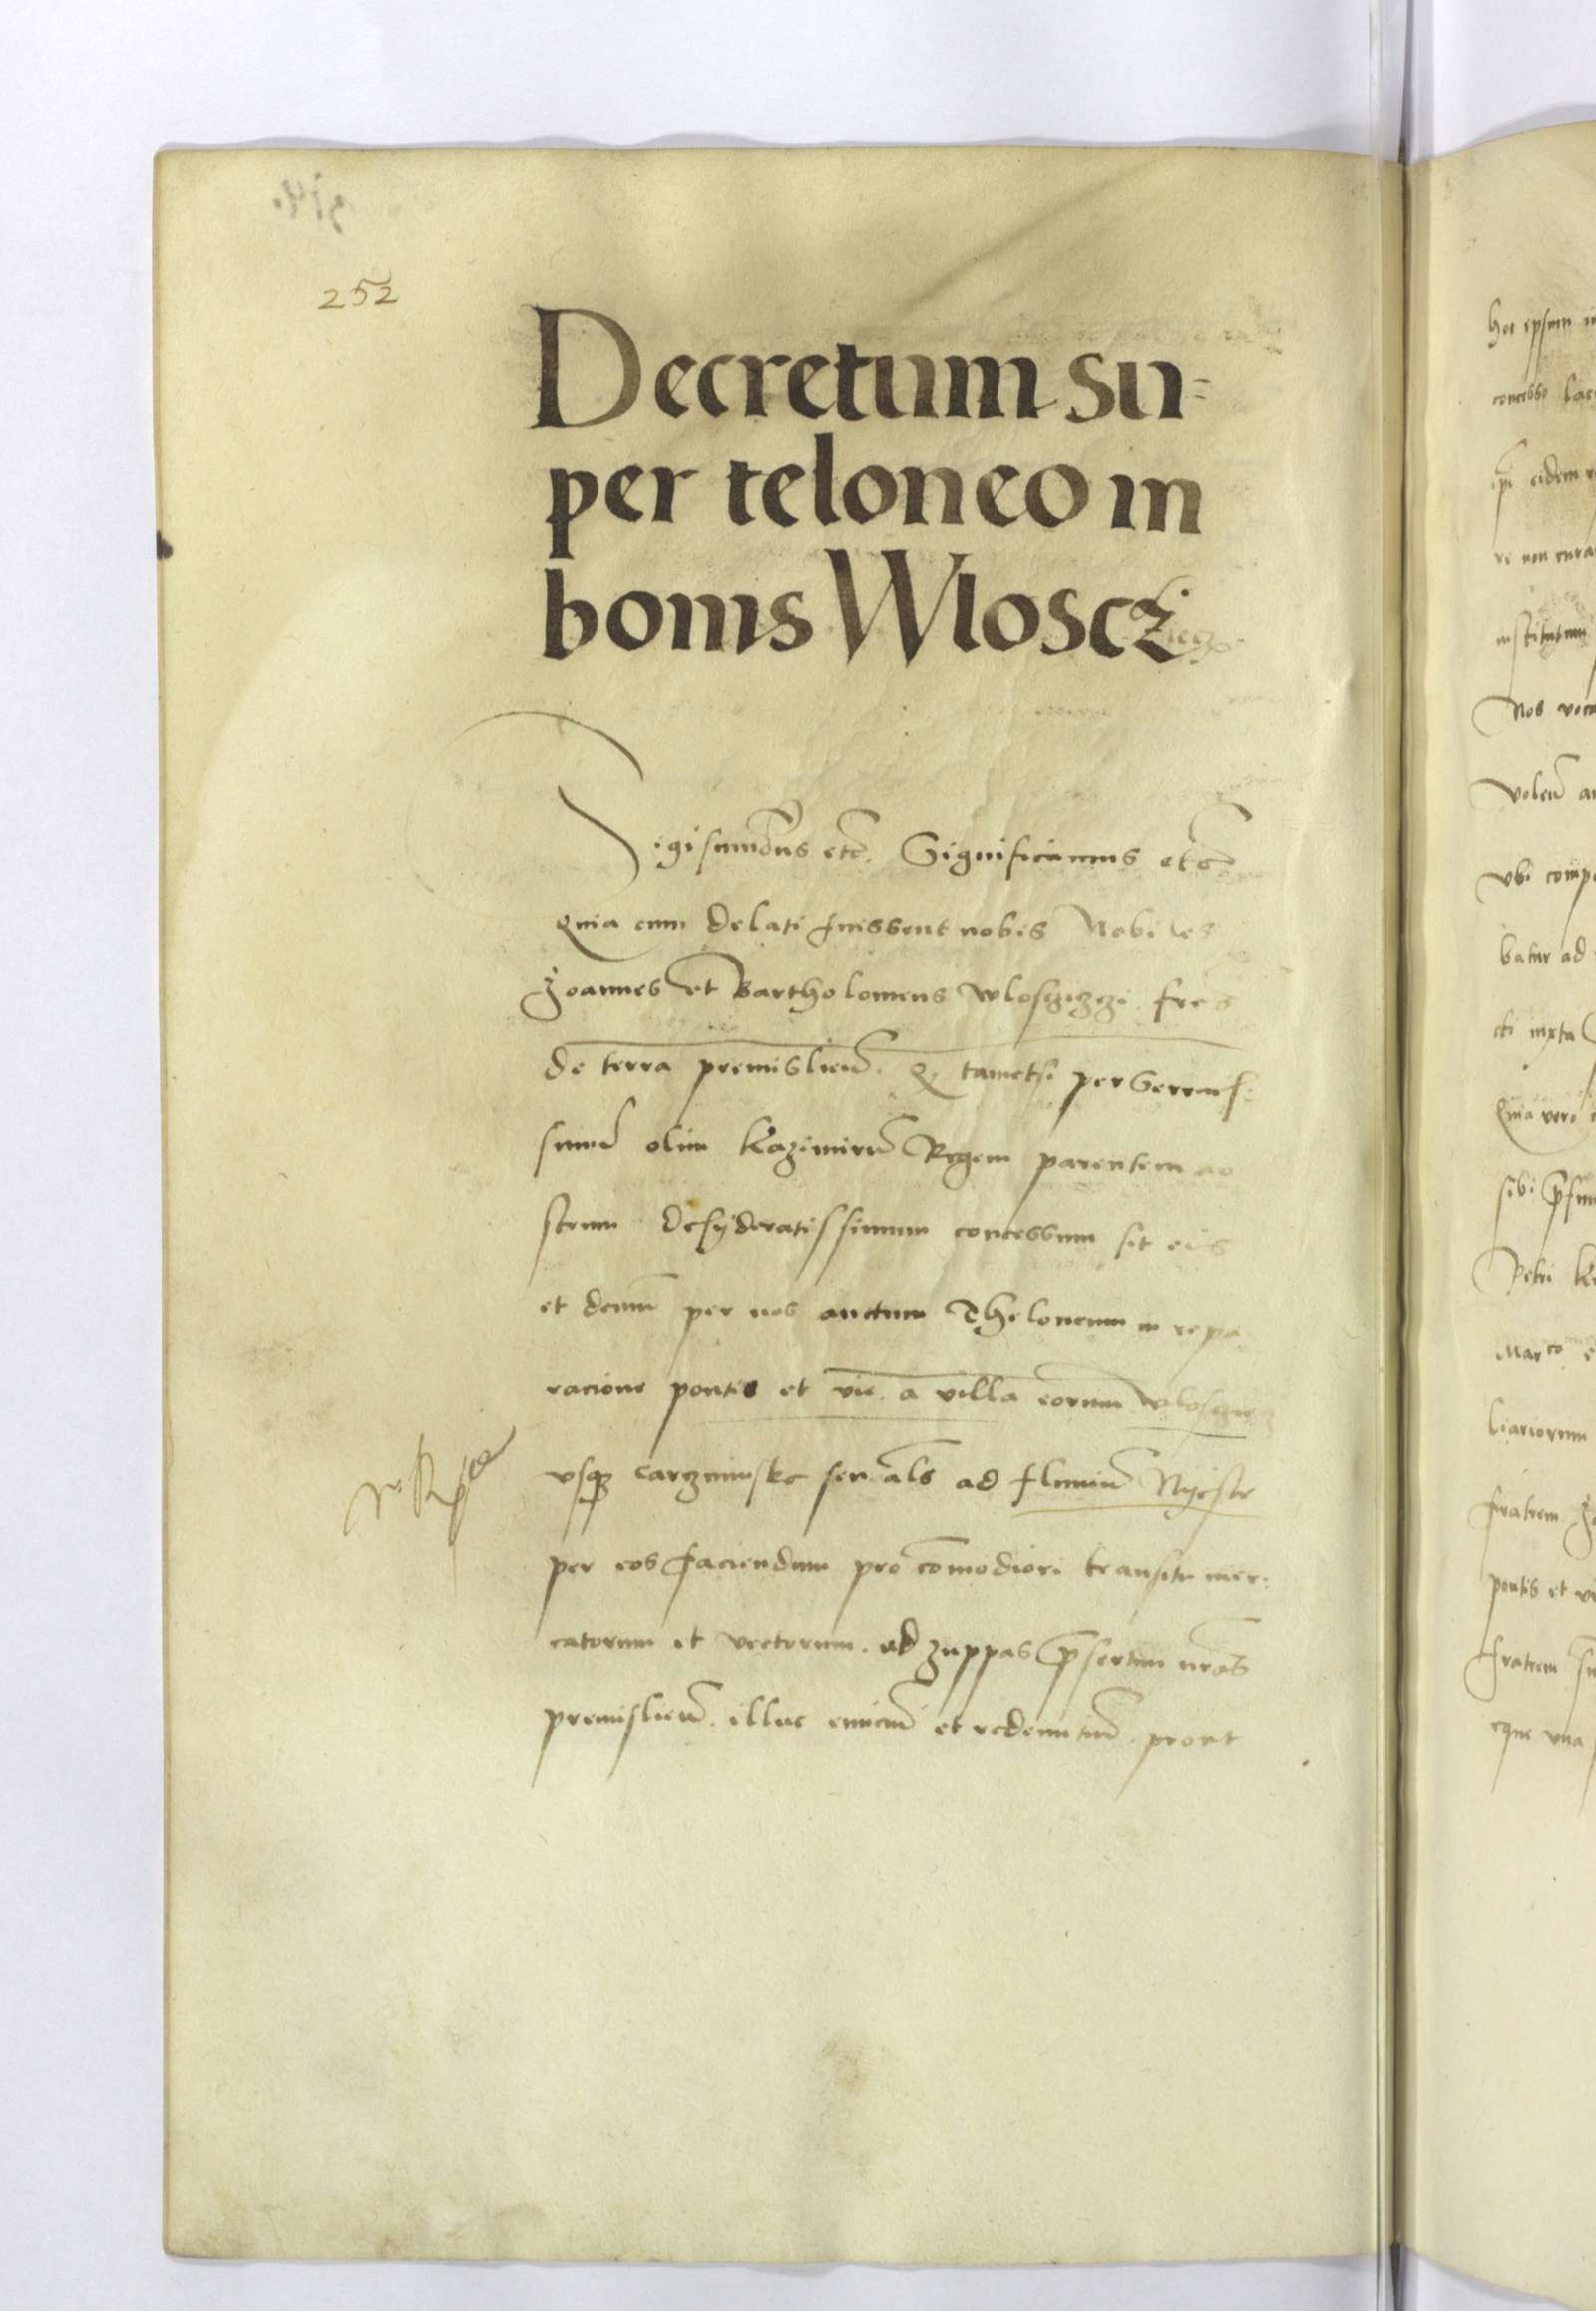 252
Decretum su=
per teloneo in
bonis Wloscz
Sigismundus etc. Significamus etc
Quia cum delati fuissent nobis Nobiles
Joannes et Bartholomeus Wlosczizzi fres
de terra premislien. Q tametsi per Serenis:
simu olim Kazimiru Regem parentem no
strum desyderatissimum concessum sit eis
et demu per nos auctum Theloneum in repa
racione pontis et vie a villa eorum
vsq seu als ad fluuiu Nyestr
per eos faciendum pro comodiori transitu mer:
catorum et vectorum ad zuppas psertim nras
premislien. illuc eunciu et redeunciu prout
hoc ipsum
concesso
ipi eidem
re non cura
institutum
Nos voca
volen
vbi comp
batur ad
cti iuxta
Quia vero
sibi
Petri
Marco
liariorum
fratrem
pontis et
fratrem
eque vna